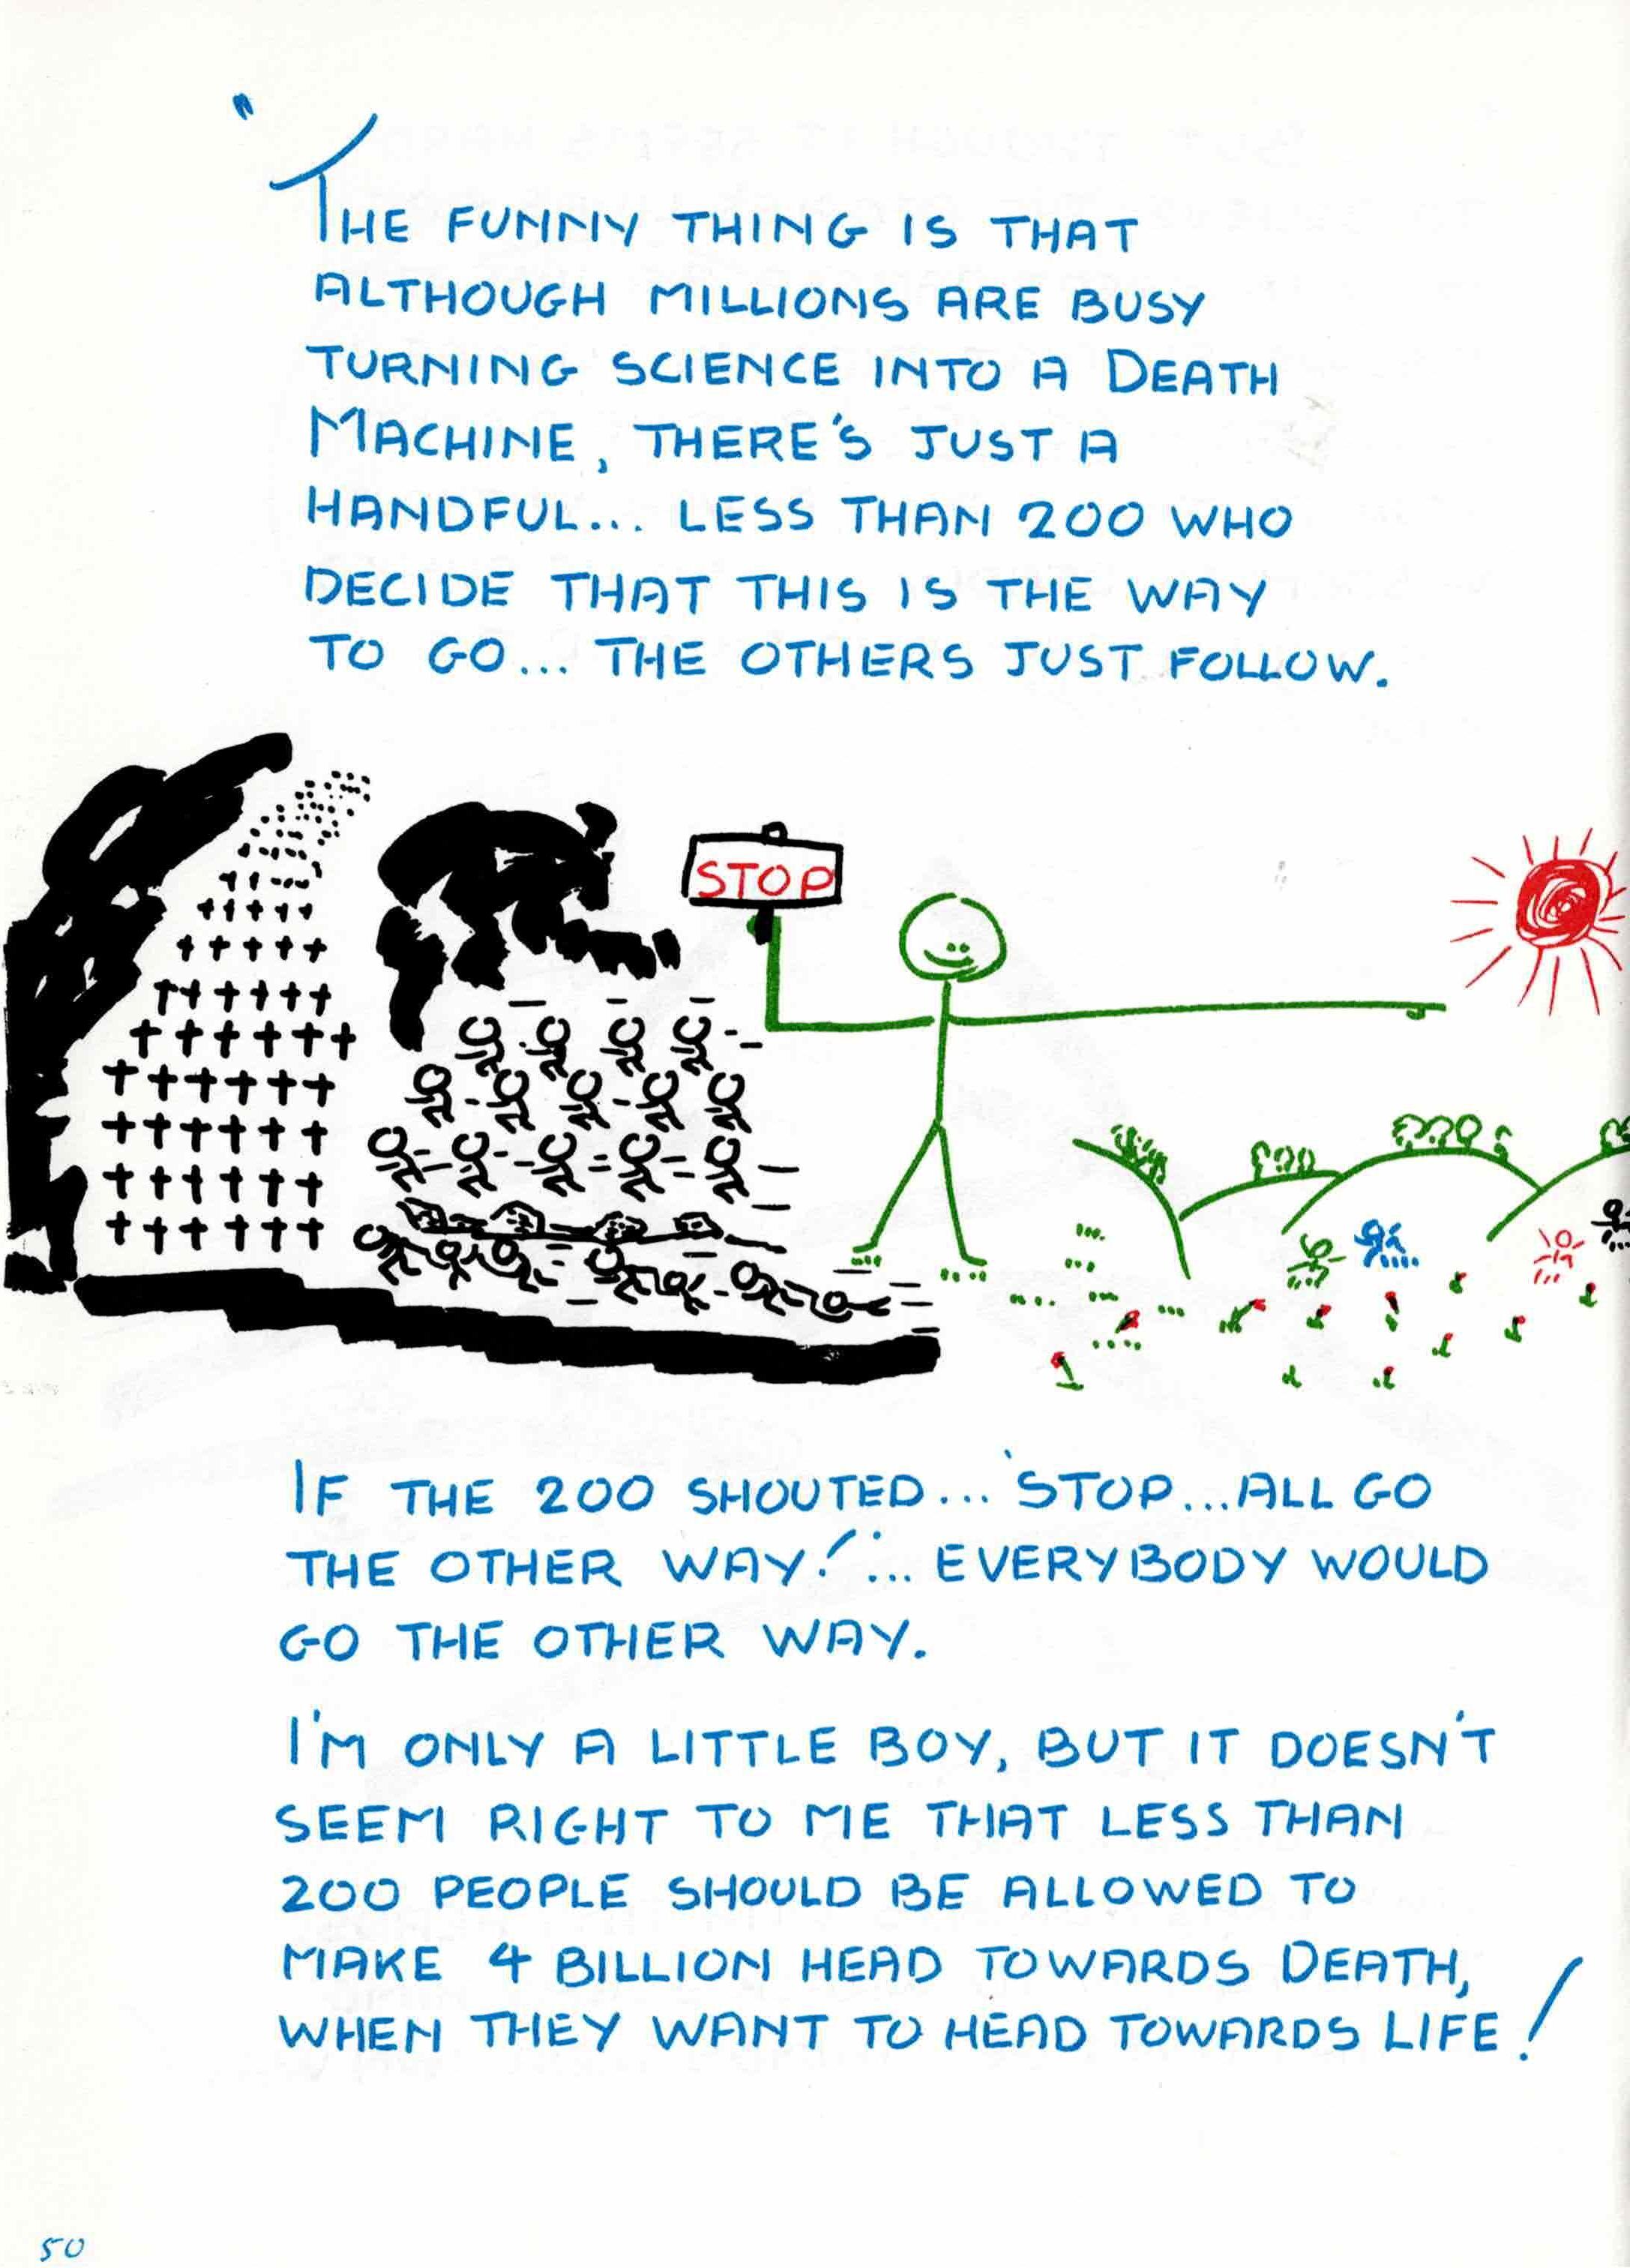 "THE FUNNY THING IS THAT
ALTHOUGH MILLIONS ARE BUSY
TURNING SCIENCE INTO A DEATH
MACHINE, THERE'S JUST A
HANDFUL... LESS THAN 200 WHO
DECIDE THAT THIS IS THE WAY
TO GO... THE OTHERS JUST FOLLOW.
STOP
IF THE 200 SHOUTED... 'STOP...ALL GO
THE OTHER WAY!'... EVERYBODY WOULD
GO THE OTHER WAY.
I'M ONLY A LITTLE BOY, BUT IT DOESN'T
SEEM RIGHT TO ME THAT LESS THAN
200 PEOPLE SHOULD BE ALLOWED TO
MAKE 4 BILLION HEAD TOWARDS DEATH,
WHEN THEY WANT TO HEAD TOWARDS LIFE!
50